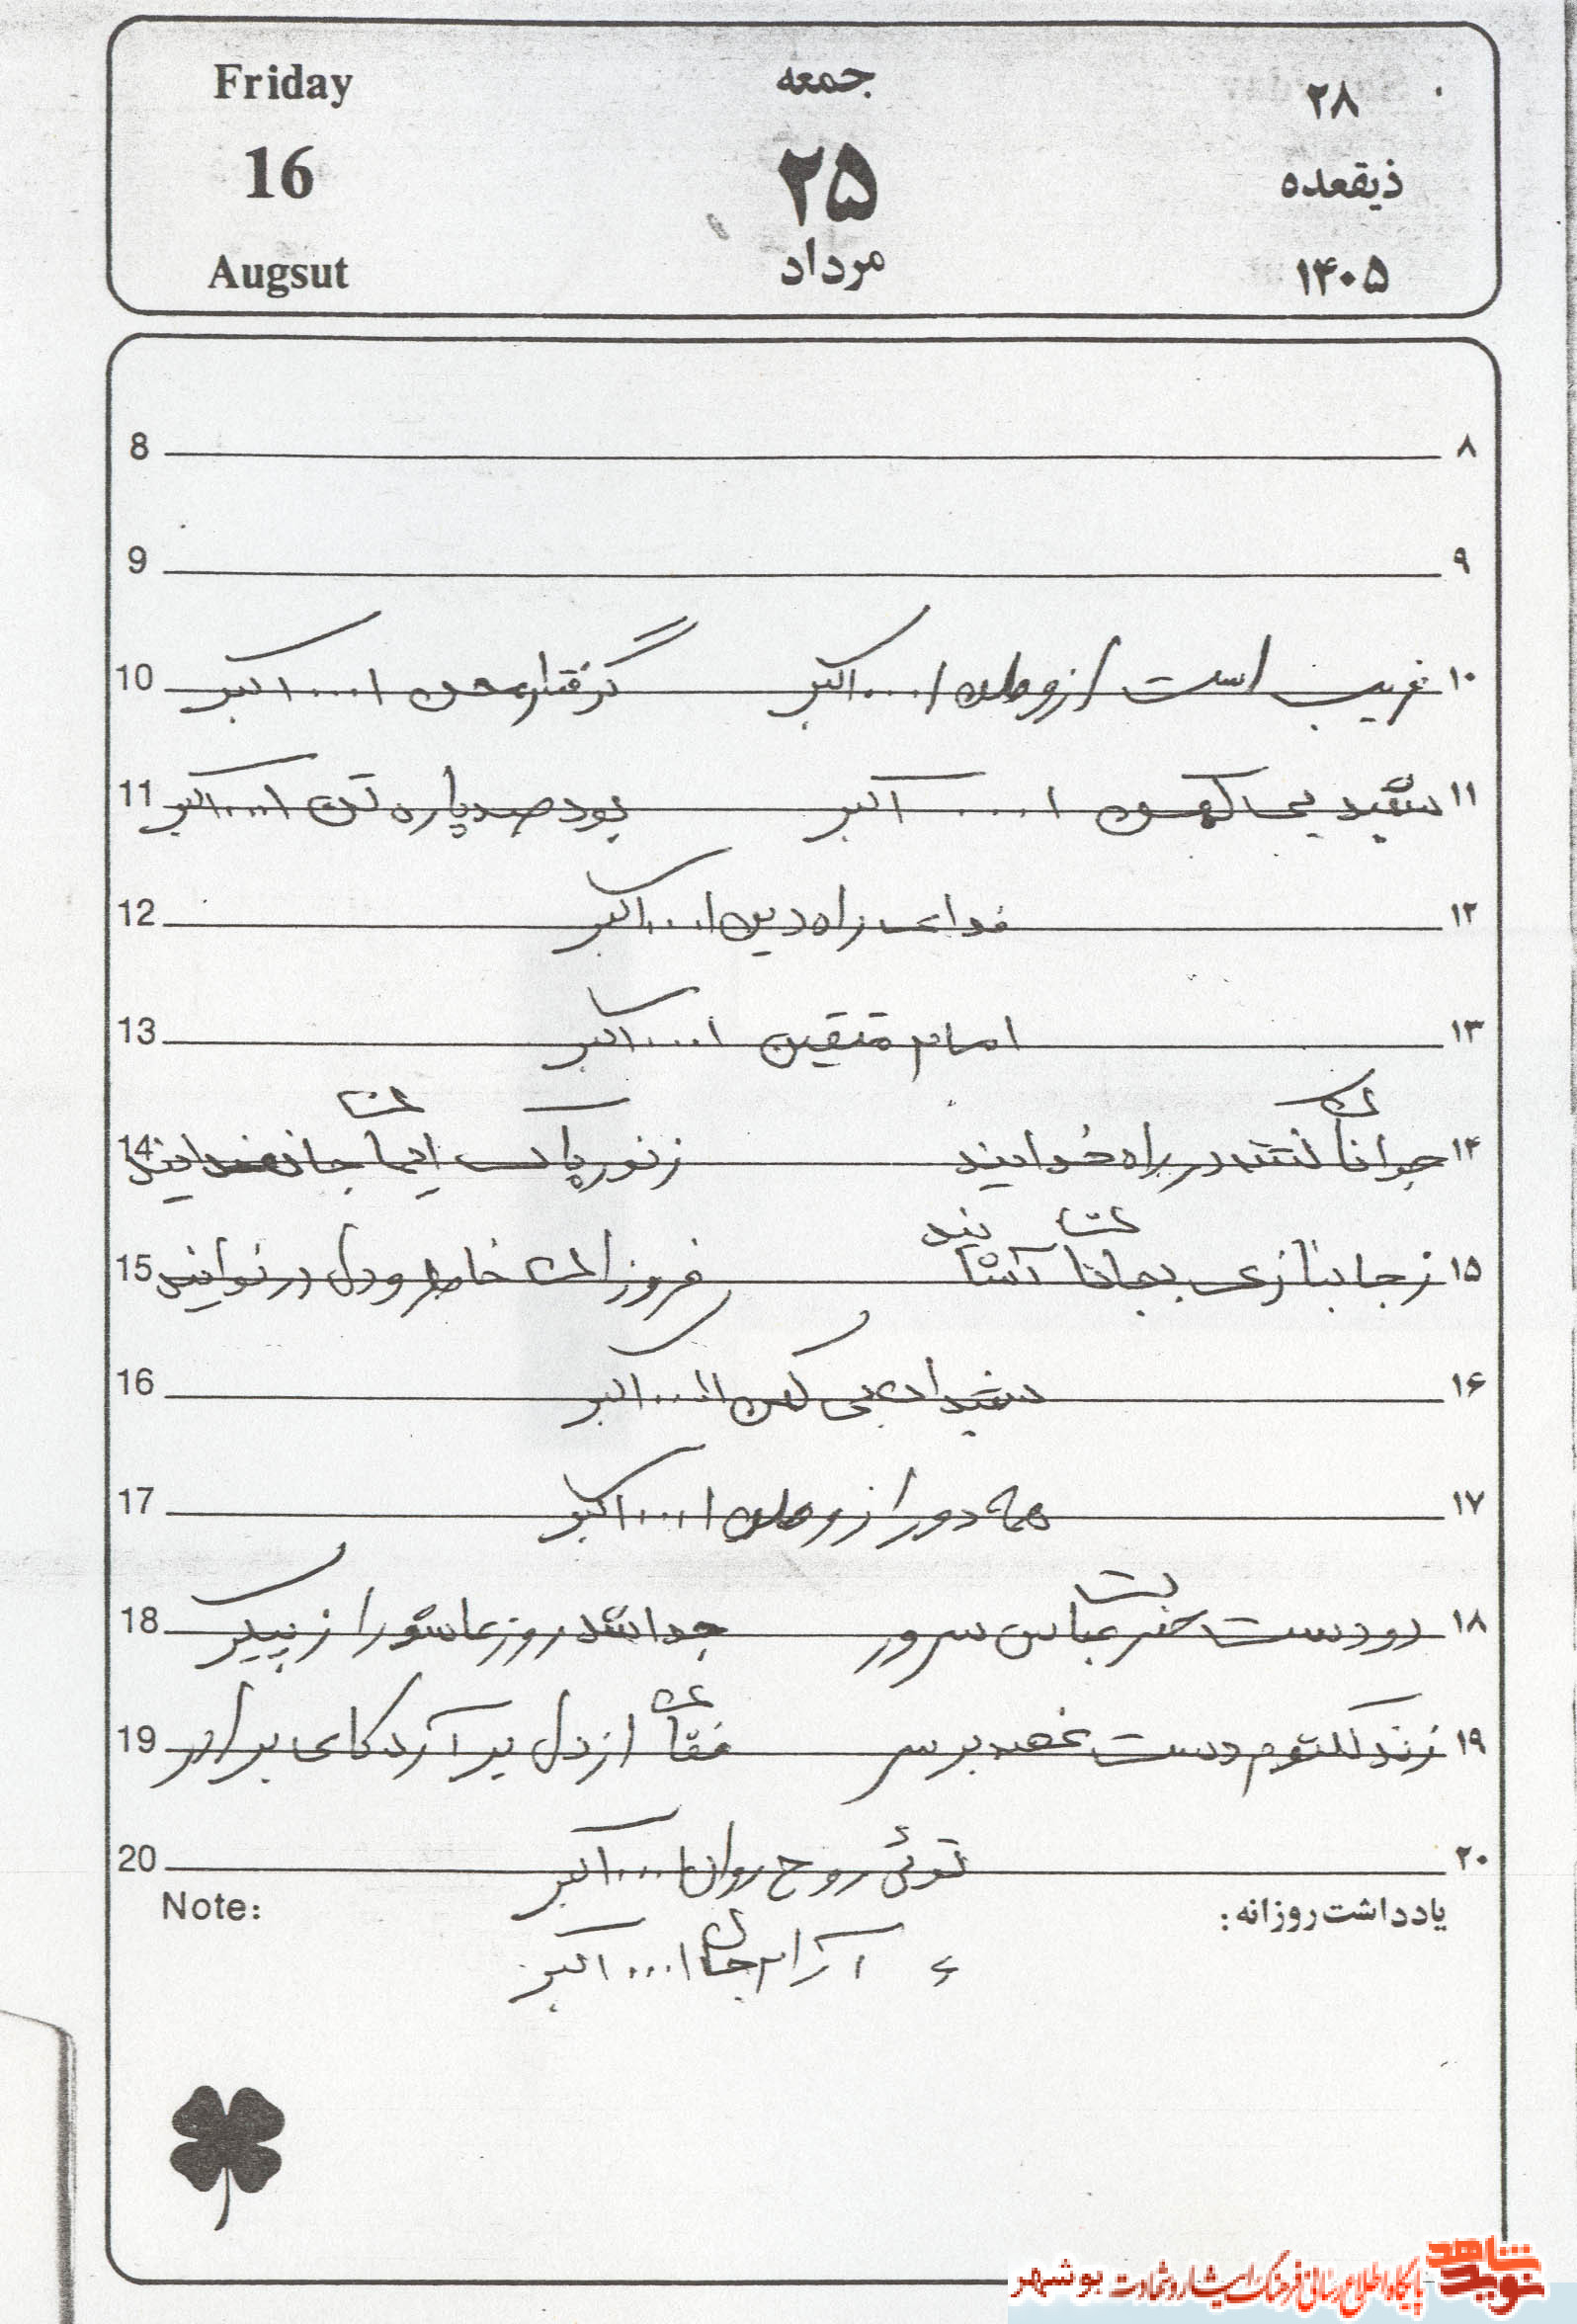 Friday جمعه ۲۸
16 ۲۵ ذیقعده
Augsut مرداد ۱۴۰۵
8 ۸
9 ۹
10 غریب است از وطن ا....اکبر گرفتار محن ا....اکبر ۱۰
11 شهید بی کفن ا.....اکبر بود صد پاره تن ا....اکبر ۱۱
12 فدای راه دین ا....اکبر ۱۲
13 امام متقین ا....اکبر ۱۳
14 جوانانی در راه خدایند ز نور پاک ایمان ۱۴
15 ز جانبازی بجانان آشنایند فروزان خاطر و دل در نوایند ۱۵
16 شهیدان بی کفن ا....اکبر ۱۶
17 همه دور از وطن ا....اکبر ۱۷
18 دو دست حضرت عباس سرور جدا شد روز عاشورا ز پیکر ۱۸
19 زند کلثوم دست غصه بر سر فغان از دل برآرد کای برادر ۱۹
20 توئی روح روان ا....اکبر ۲۰
Note: یادداشت روزانه:
آرام جان ا....اکبر
نوید شاهد
پایگاه اطلاع رسانی فرهنگ ایثار و شهادت بوشهر